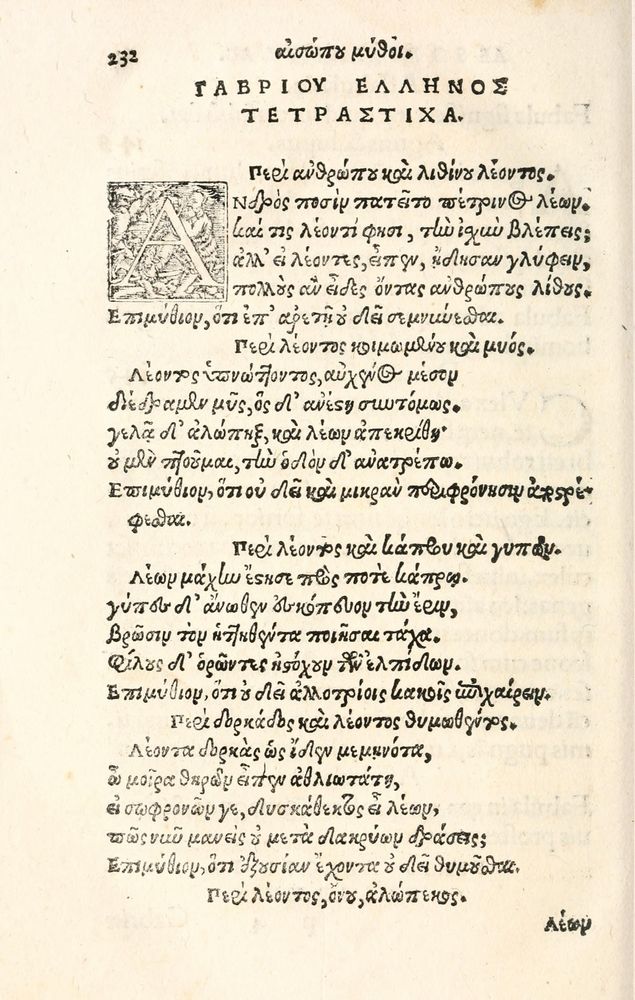 232 αἰσώπου μῦθοι.
ΓΑΒΡΙΟΥ ΕΛΛΗΝΟΣ
ΤΕΤΡΑΣΤΙΧΑ.
Περὶ ἀνθρώπου καὶ λιθίνου λέοντος.
ΑΝδρὸς ποσὶν πατεῖτο πέτρινος λέων.
καί τις λέοντί φησι, τὴν ἰσχὺν βλέπεις;
ἀλλ' εἰ λέοντες, εἶπεν, ᾔδησαν γλύφειν,
πολλοὺς ἂν εἶδες ὄντας ἀνθρώπους λίθους.
Επιμύθιον, ὅτι ἐπ' ἀρετῇ οὐ δεῖ σεμνύνεσθαι.
Περὶ λέοντος κοιμωμένου καὶ μυός.
Λέοντος ὑπνώττοντος, αὐχένος μέσον
διέδραμεν μῦς, ὃς δ' ἀνέστη συντόμως.
γελᾷ δ' ἀλώπηξ, καὶ λέων ἀπεκρίθη·
οὐ μῦν πτοοῦμαι, τὴν ὁδὸν δ' ἀνατρέπω.
Επιμύθιον, ὅτι οὐ δεῖ καὶ μικρὰν καταφρόνησιν
φεσθαι.
Περὶ λέοντος καὶ κάπρου καὶ γυπῶν.
Λέων μάχην ἔστησε πρός ποτε κάπρῳ.
γύπες δ' ἄνωθεν ἐσκόπευον τὴν ἔριν,
βρῶσιν τὸν ἡττηθέντα ποιῆσαι τάχα.
Φίλους δ' ὁρῶντες ἠστόχουν τῶν ἐλπίδων.
Επιμύθιον, ὅτι οὐ δεῖ ἀλλοτρίοις κακοῖς ἐπιχαίρειν.
Περὶ δορκάδος καὶ λέοντος θυμωθέντος.
Λέοντα δορκὰς ὡς ἴδεν μεμηνότα,
ὦ μοῖρα θηρῶν εἶπεν ἀθλιωτάτη,
εἰ σωφρονῶν γε, δυσκάθεκτος εἶ λέων,
πῶς νῦν μανεὶς οὐ μετὰ δακρύων δράσεις;
Επιμύθιον, ὅτι ἐξουσίαν ἔχοντα οὐ δεῖ θυμοῦσθαι.
Περὶ λέοντος, ὄνου, ἀλώπεκος.
Λέων